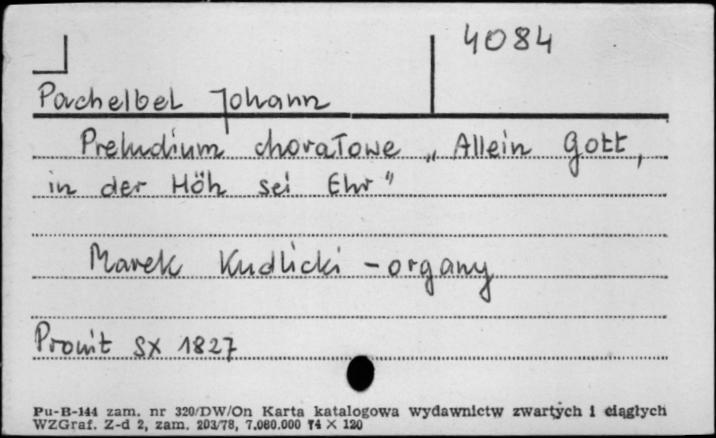 4084
Pachelbel Johann
Preludium chorałowe „Allein Gott,
in der Höh sei Ehr"
Marek Kudlicki - organy
Pronit SX 1827
Pu-B-144 zam. nr 320/DW/On Karta katalogowa wydawnictw zwartych i ciągłych
WZGraf. Z-d 2, zam. 203/78, 7.000.000 74 × 120